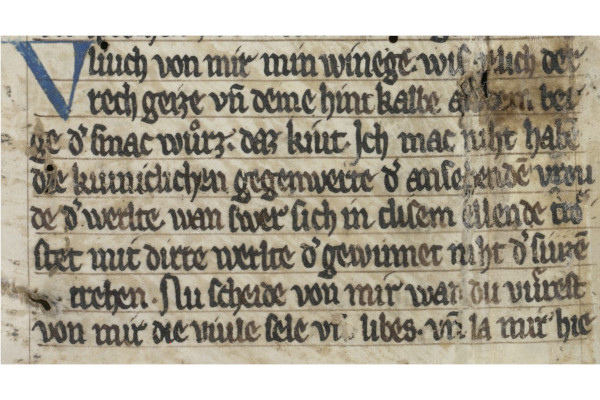 Vliuch von mir min winege. wis glich der
rech geize vn̄ deme hint kalbe an dem ber
ge dˀ smac wůrz. daz kiut. Ich mac niht habē
die kuniclichen gegenwerte dˀ ansehendē vreu
de dˀ werlte. wan swer sich in disem ellende trö
stet mit dirre werlte dˀ gewinnet niht dˀ suzē
trehen. Nu scheide von mir war du vurest
von mir die viule sele libes. vn̄ la mir hie